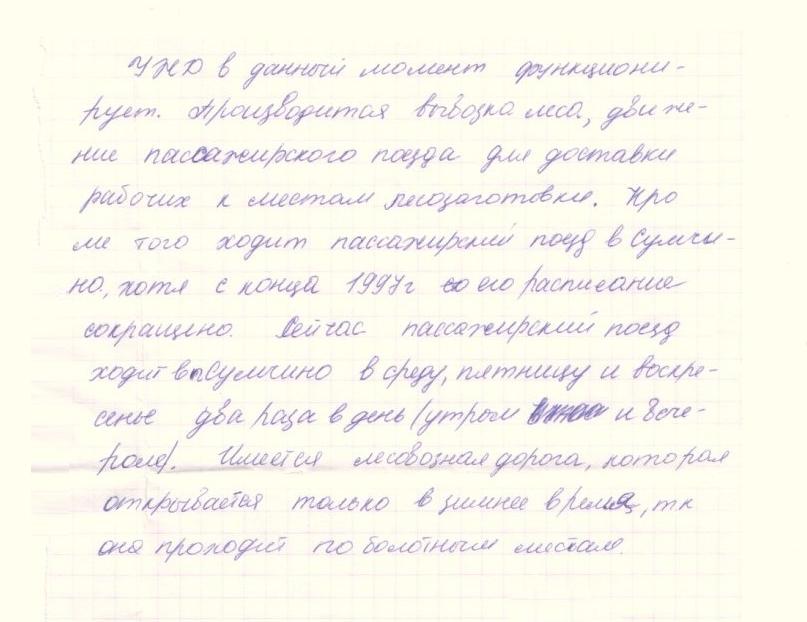 УЖД в данный момент функциони-
рует. Производится вывозка леса, движе-
ние пассажирского поезда для доставки
рабочих к местам лесозаготовки. Кро
ме того ходит пассажирский поезд в Сумчи-
но, хотя с конца 1997г его расписание
сокращено. Сейчас пассажирский поезд
ходит в п Сумчино в среду, пятницу и воскре-
сенье два раза в день (утром и вече-
ром). Имеется лесовозная дорога, которая
открывается только в зимнее время, тк
она проходит по болотным местам.